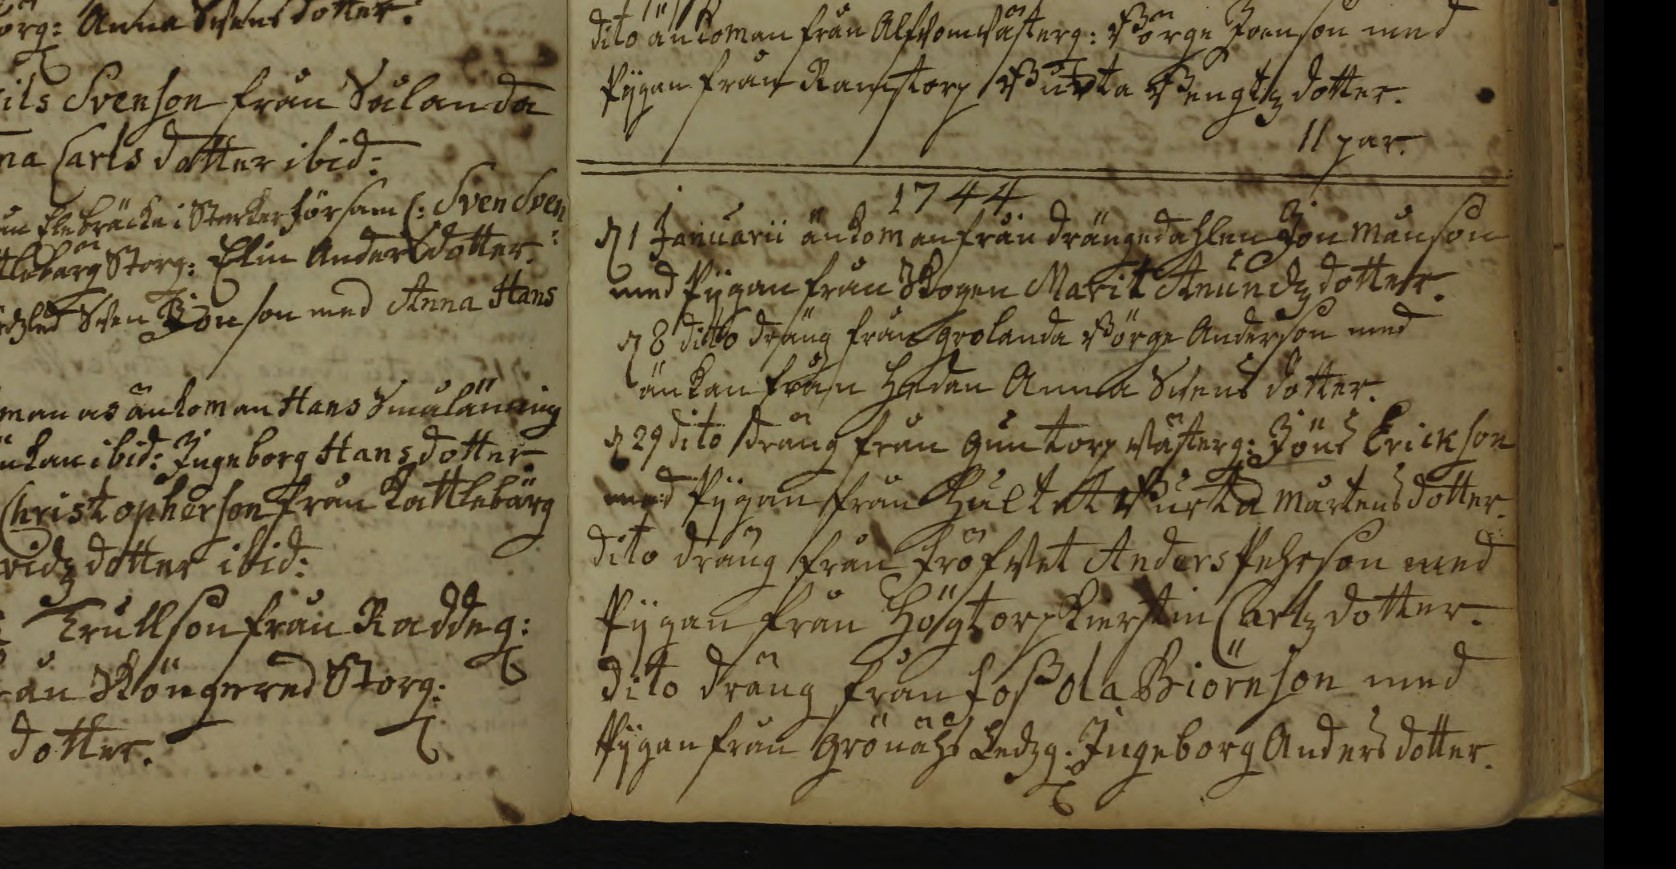 Anna Svens dotter.
Svenson från Sulanda
Carls dotter ibid:
i Storkyr försam (: Sven Sven
Storg: Elin Anders dotter.
Sven Jönson med Anna Hans
änkoman Hans Smulänning
änkan ibid: Ingeborg Hans dotter
Christopherson från Kattlebärg
dotter ibid:
Trullson från Raddeg:
Köngered Storg:
dotter.
dito änkoman från Alfvom Västerg: Börge Joenson med
Pÿgan från Ramstorp Burta Bengtz dotter.
11 par.
1744
d 1 Januarii änkoman från drängedahlen Jon Månson
med Pÿgan från Skogen Marit Amundz dotter.
d 8 dito dräng från Grolanda Börge Anderson med
änkan från Hedan Anna Svens dotter.
d 29 dito dräng från Guntorp Västerg: Jöns Erickson
med Pÿgan från Hultet Burta Mårtens dotter.
dito dräng från Anders Pehrson med
Pÿgan från Högtorp Kierstin Carlz dotter.
dito dräng från foss Ola Biörnson med
Pÿgan från Grönåhs Ledzg: Ingeborg Anders dotter.